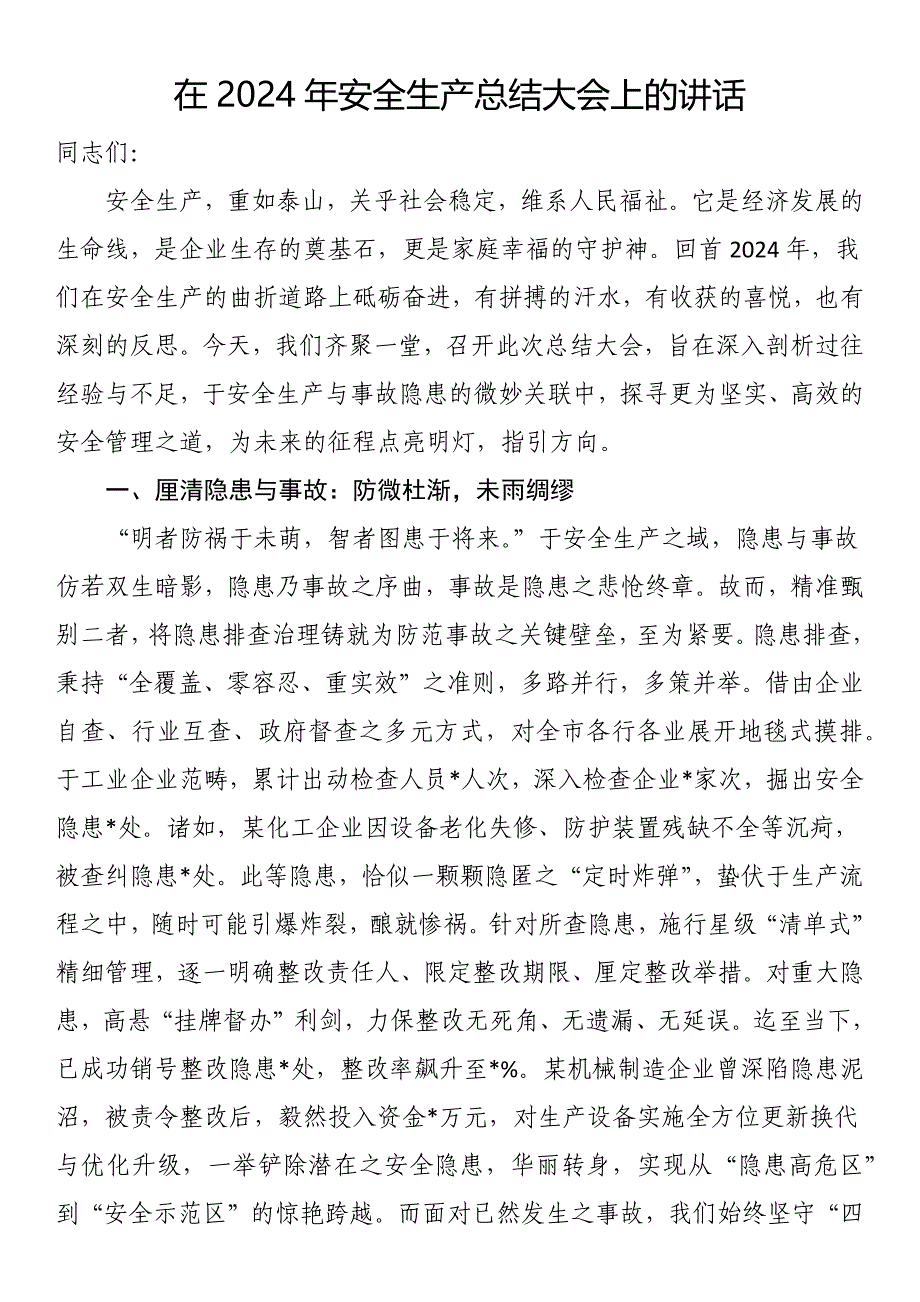 在 2024 年安全生产总结大会上的讲话
同志们：
安全生产，重如泰山，关乎社会稳定，维系人民福祉。它是经济发展的
生命线，是企业生存的奠基石，更是家庭幸福的守护神。回首 2024 年，我
们在安全生产的曲折道路上砥砺奋进，有拼搏的汗水，有收获的喜悦，也有
深刻的反思。今天，我们齐聚一堂，召开此次总结大会，旨在深入剖析过往
经验与不足，于安全生产与事故隐患的微妙关联中，探寻更为坚实、高效的
安全管理之道，为未来的征程点亮明灯，指引方向。
一、厘清隐患与事故：防微杜渐，未雨绸缪
“明者防祸于未萌，智者图患于将来。”于安全生产之域，隐患与事故
仿若双生暗影，隐患乃事故之序曲，事故是隐患之悲怆终章。故而，精准甄
别二者，将隐患排查治理铸就为防范事故之关键壁垒，至为紧要。隐患排查，
秉持“全覆盖、零容忍、重实效”之准则，多路并行，多策并举。借由企业
自查、行业互查、政府督查之多元方式，对全市各行各业展开地毯式摸排。
于工业企业范畴，累计出动检查人员*人次，深入检查企业*家次，掘出安全
隐患*处。诸如，某化工企业因设备老化失修、防护装置残缺不全等沉疴，
被查纠隐患*处。此等隐患，恰似一颗颗隐匿之“定时炸弹”，蛰伏于生产流
程之中，随时可能引爆炸裂，酿就惨祸。针对所查隐患，施行星级“清单式”
精细管理，逐一明确整改责任人、限定整改期限、厘定整改举措。对重大隐
患，高悬“挂牌督办”利剑，力保整改无死角、无遗漏、无延误。迄至当下，
已成功销号整改隐患*处，整改率飙升至*%。某机械制造企业曾深陷隐患泥
沼，被责令整改后，毅然投入资金*万元，对生产设备实施全方位更新换代
与优化升级，一举铲除潜在之安全隐患，华丽转身，实现从“隐患高危区”
到“安全示范区”的惊艳跨越。而面对已然发生之事故，我们始终坚守“四